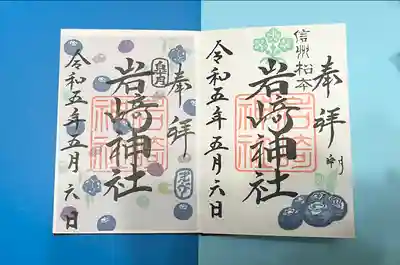 奉拝
岩﨑神社
皐月
令和五年五月六日
信州松本
奉拝
岩﨑神社
岩崎神社
令和五年五月六日